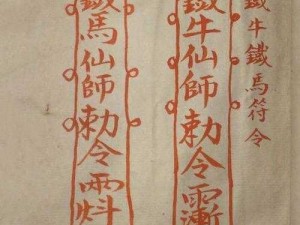 鐵牛鐵馬符令
鐵牛仙師勅令
鐵馬仙師勅令